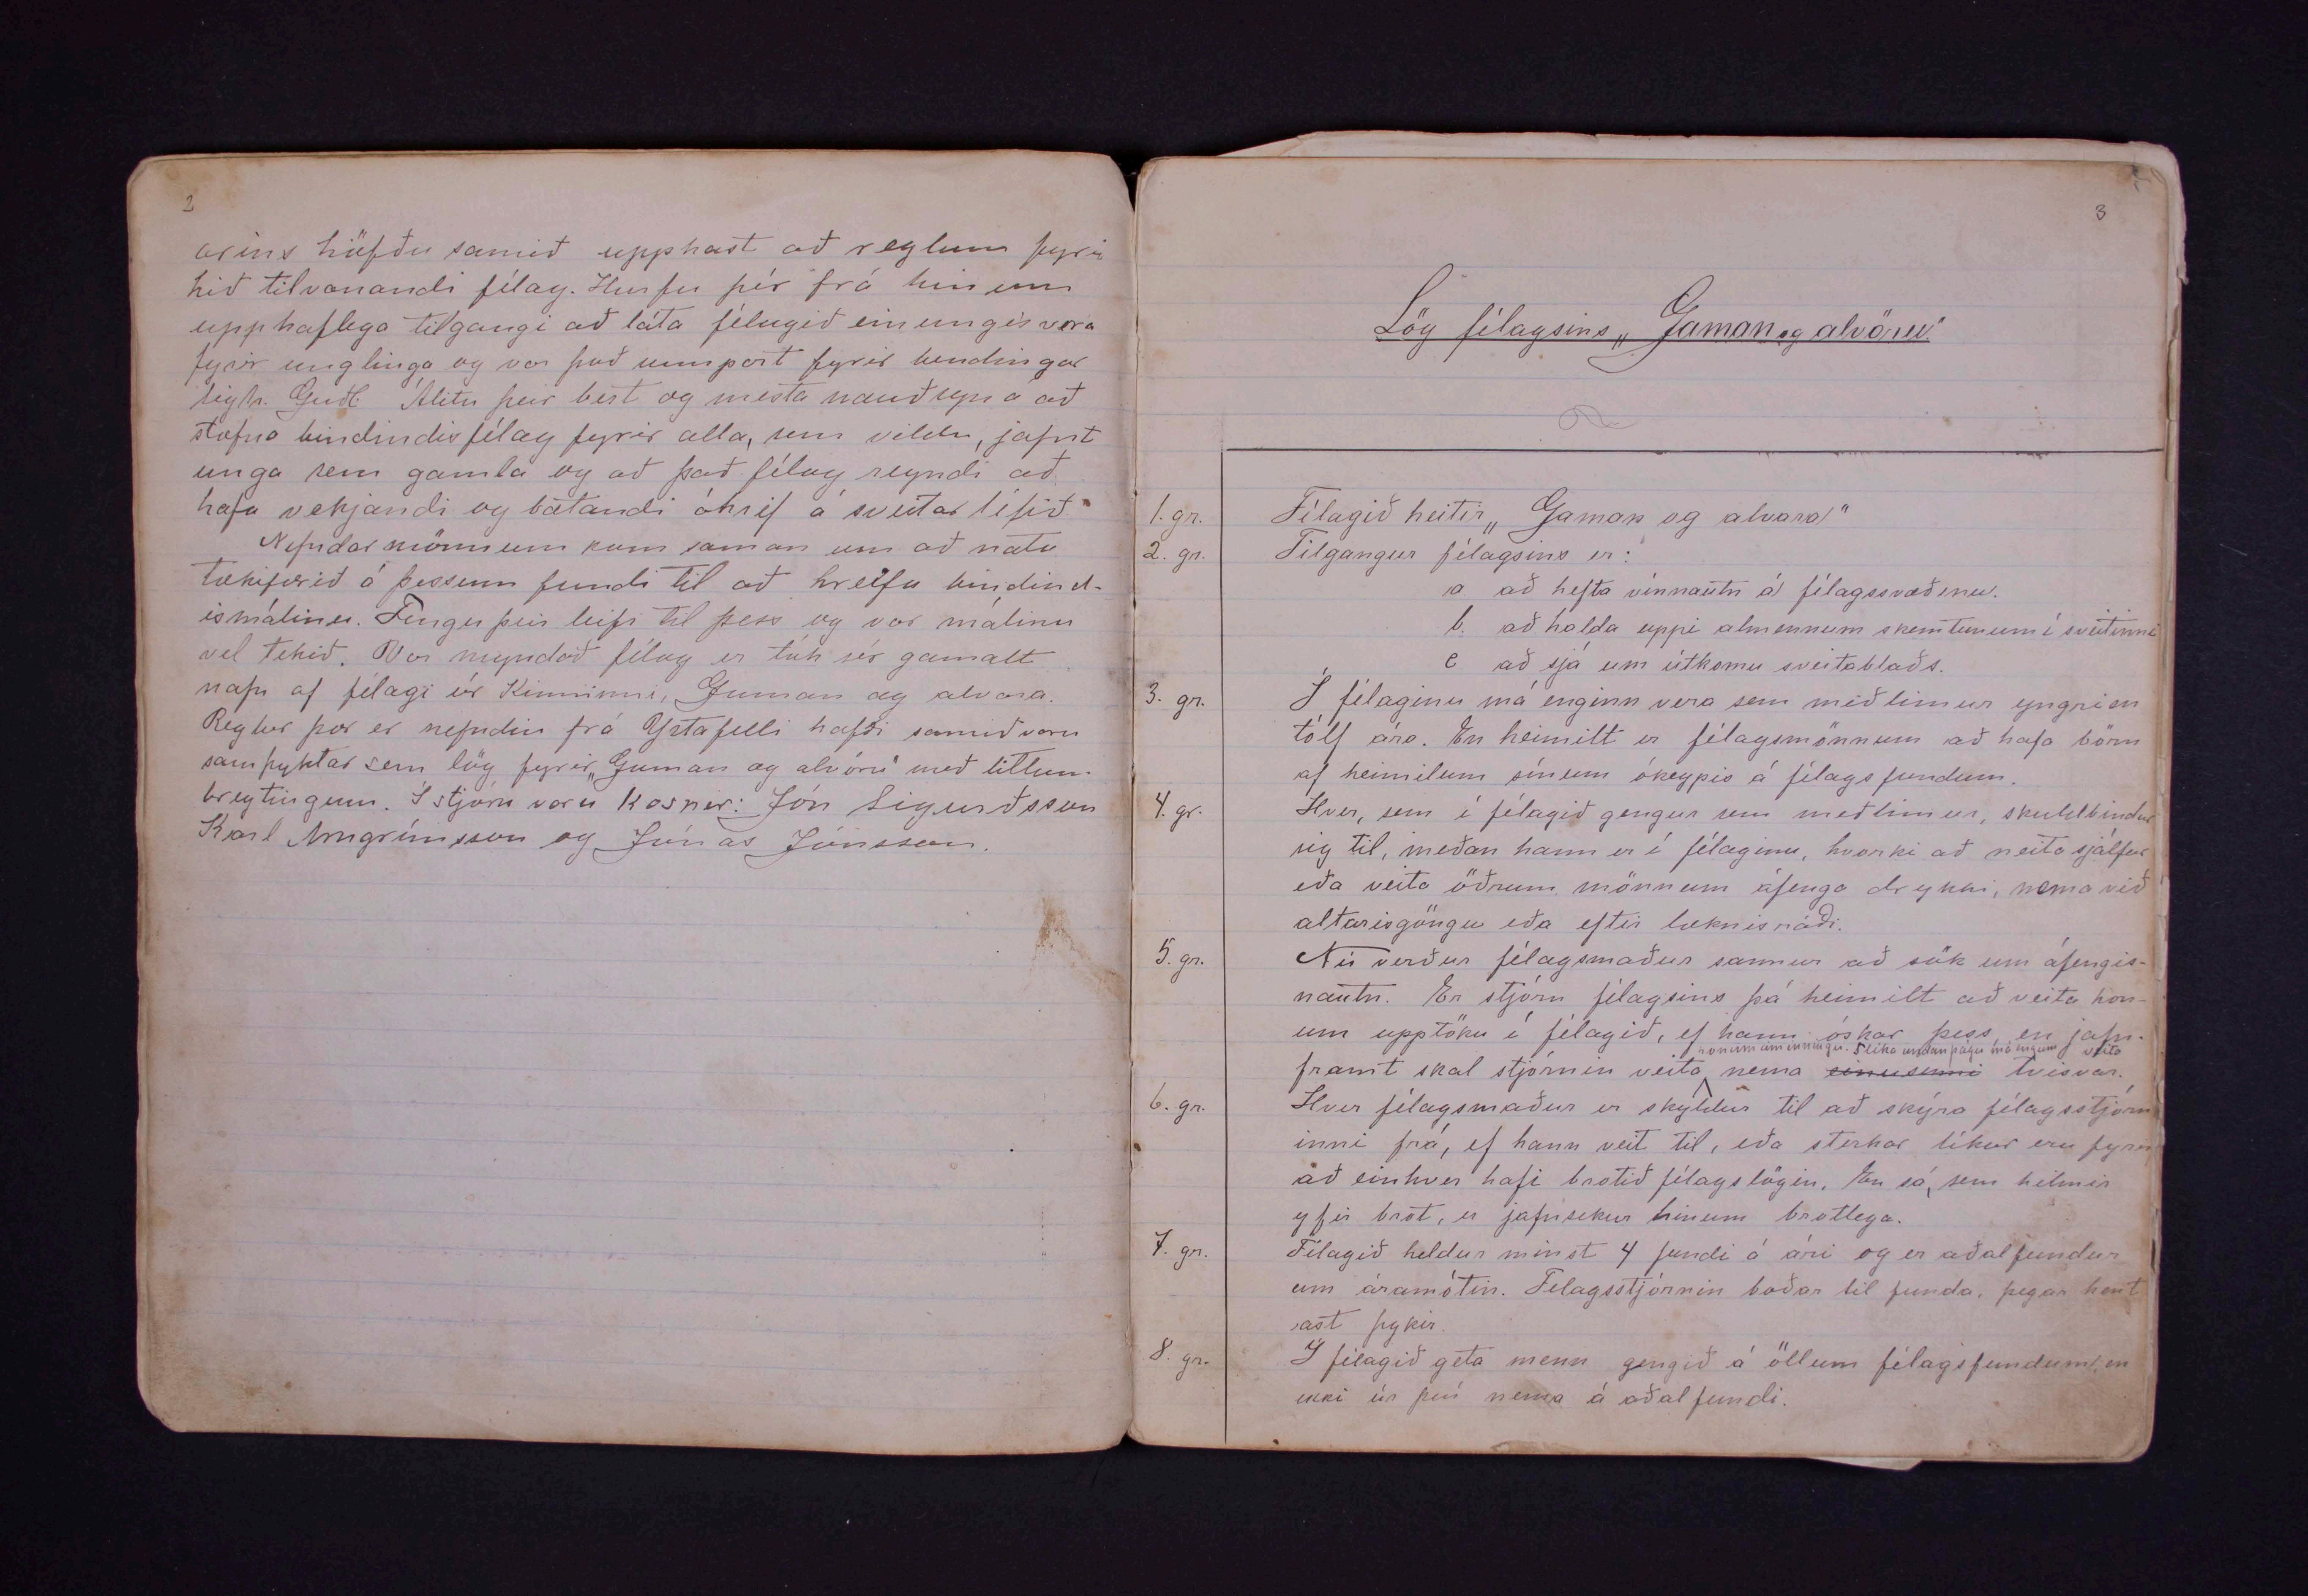 2
arins höfðu samið upphast að reglum fyrir
hið tilvonandi félag. Hurfu þér frá hinum
upphaflega tilgangi að láta félagið einungis vera
fyrir unglinga og var það umpart fyrir bendingar
Sigtr. Guðl. Álitu þeir best og mesta nauðsyn á að
stofna bindindisfélag fyrir alla, sem vildu, jafnt
unga sem gamla og að það félag reyndi að
hafa vekjandi og bætandi áhrif á sveitarlífið
Nefndarmönnum kom saman um að nota
tækifærið á þessum fundi til að hreifa bindind-
ismálinu. Fengu þeir leifi til þess og var málinu
vel tekið. Var myndað félag er tók sér gamalt
nafn af félagi úr Kinninni, Gaman og alvara.
Reglur þær er nefndin frá Ystafelli hafði samið voru
samþyktar sem lög fyrir „Gaman og alvöru" með litlum
breytingum. Í stjórn voru kosnir: Jón Sigurðsson
Karl Arngrímsson og Jónas Jónsson.
3
Lög félagsins „Gaman og alvöru".
1. gr. Félagið heitir „Gaman og alvara"
2. gr. Tilgangur félagsins er:
a að hefta vínnautn á félagssvæðinu.
b. að halda uppi almennum skemtunum í sveitinni
c að sjá um útkomu sveitablaðs.
3. gr. Í félaginu má enginn vera sem meðlimur yngri en
tólf ára. En heimilt er félagsmönnum að hafa börn
af heimilum sínum ókeypis á félagsfundum.
4. gr. Hver, sem í félagið gengur sem meðlimur, skuldbindur
sig til, meðan hann er í félaginu, hvorki að neita sjálfur
eða veita öðrum mönnum áfenga drykki, nema við
altarisgöngu eða eftir læknisráði.
5. gr. Nú verður félagsmaður sannur að sök um áfengis-
nautn. Er stjórn félagsins þá heimilt að veita hon-
um upptöku í félagið, ef hann óskar þess, en jafn-
honum áminningu. Slíka undanþágu má engum veita
framt skal stjórnin veita nema einusinni tvisvar.
6. gr. Hver félagsmaður er skyldur til að skýra félagsstjórn
inni frá, ef hann veit til, eða sterkar líkur eru fyrir,
að einhver hafi brotið félagslögin. En sá, sem hilmir
yfir brot, er jafnsekur hinum brotlega.
7. gr. Félagið heldur minst 4 fundi á ári og er aðalfundur
um áramótin. Félagsstjórnin boðar til funda, þegar hent
ast þykir.
8. gr. Í félagið geta menn gengið á öllum félagsfundum, en
ekki úr því nema á aðalfundi.